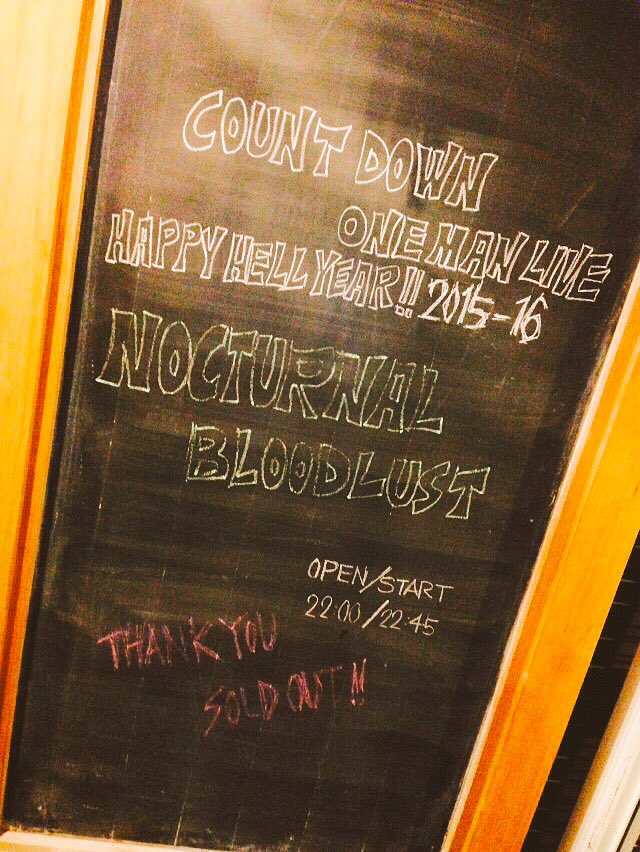 COUNT DOWN
ONE MAN LIVE
HAPPY HELL YEAR!! 2015-16
NOCTURNAL
BLOODLUST
OPEN/START
22:00/22:45
THANK YOU
SOLD OUT!!